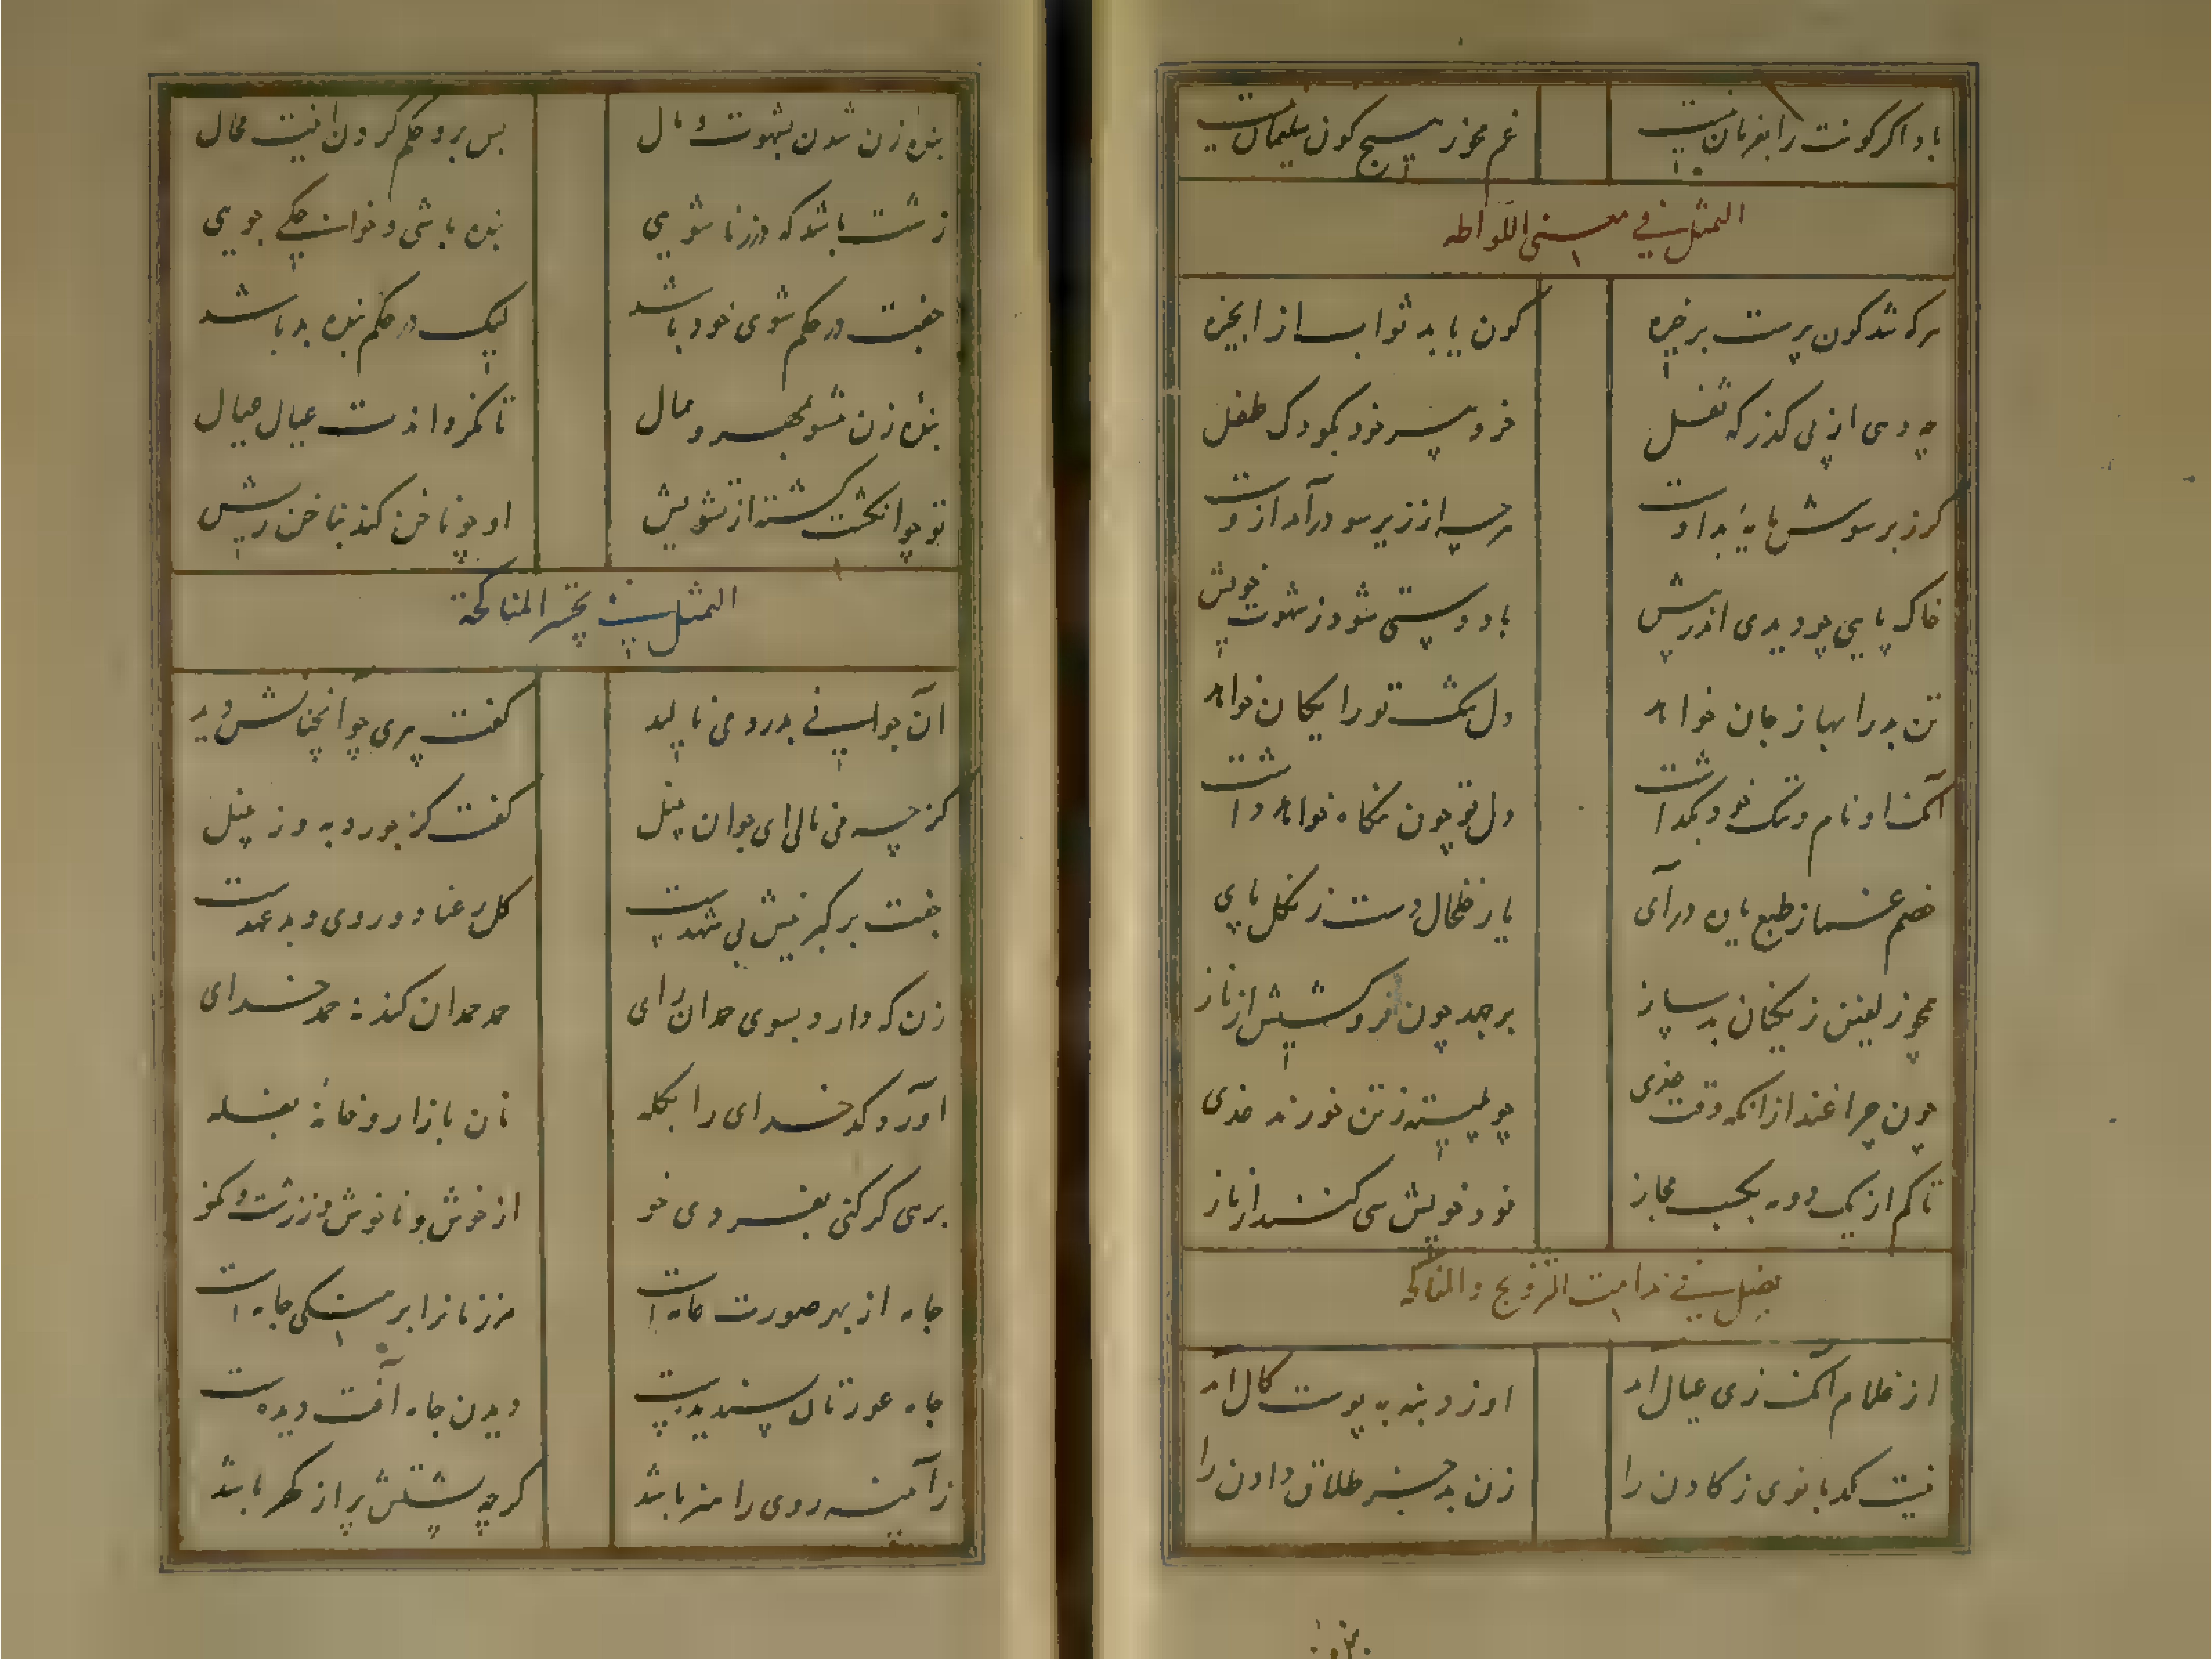 باد اگر کونت را بفرمان نیست
غم مخور هیچ کون سلیمان نیست
التمثل فی معنی اللواطه
هرکه شد کون پرست بر خیره
کون یابد ثواب از
از پی کذر که ثفل
خرد سر خرد کودک طفل
کرز بر سوش مایهٔ بداوست
هرچه از زیر سو درآمد ازوست
خاک پایی چو دیدی اندر پیش
باد دستی شود ز شهوت خویش
تن بد را بها ز جان خواهد
دل تو رایکان خواهد
آنک او نام و ننک خود بگذاشت
دل تو چون نگاه خواهد داشت
خصم از طبع یاوه درآی
یار خلخال دست زنکل پای
همچو زلفین نیکوان
برجهد چون فرو کشیش از ناز
چون چراغند ازانکه وقت
چو فتیله ز تن خورند غذی
تا کم از یک دوه بحسب مجاز
خود خویش می کشند از ناز
فصل فی ندامت التزویج والمناکحه
از غلام آنک زی عیال امد
او ز دنبه به پوست کال امد
نیست کدبانوی ز کادن را
زن بد جز طلاق دادن را
بندهٔ زن شدن بشهوت و مال
پس برو حکم کردن اینت محال
زشت باشد که در زناشویی
بنده باشی و خواجکی جویی
جفت در حکم شوی خود باشد
لیک در حکم بنده بد باشد
بندهٔ زن مشو بمهر و بمال
تا نکرداندت عیال عیال
تو چو انکشت کشته از تشویش
او چو ناخن کند بناخن ریش
التمثل فی تحیر المناکحة
آن جوانی بدرد می نالید
کفت پیری چو آنچنانش دید
کز چه می نالی ای جوان نبیل
کفت کز جور
جفت بر کبر نیش بی شهدست
کل رعنا دوروی و بدعهدست
زن که دارد بسوی حمدان رای
حمد حمدان کند نه حمد خدای
آورد کدخدای را بکله
نان بازار و خانهٔ بغله
بری کر کنی بفردی خو
از خوش و ناخوش وز زشت و نکو
جاه از بهر صورت
مر زنانرا برهنکی جامه است
جامه عورتان پسندیدست
دیدن جامه آفت دیدست
زآینه روی را هنر باشد
کرچه پشتش پر از کهر باشد